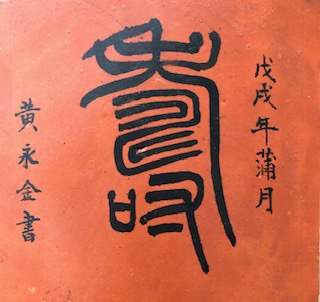 戊戌年蒲月
壽
黄永金書